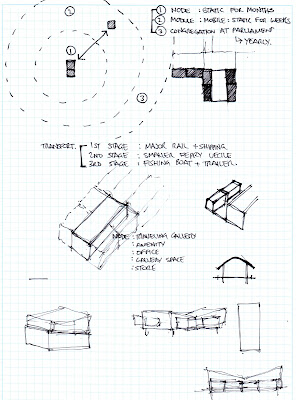 ① NODE : STATIC FOR MONTHS
② MODULE : MOBILE : STATIC FOR WEEKS
③ CONGREGATION AT PARLIAMENT
↳ YEARLY.
②
①
③
TRANSPORT.
1ST STAGE : MAJOR RAIL + SHIPPING
2ND STAGE : SMALLER FERRY
3RD STAGE : FISHING BOAT + TRAILER.
NODE : TRAVELING GALLERY
: AMENITY
: OFFICE
: GALLERY SPACE
: STORE